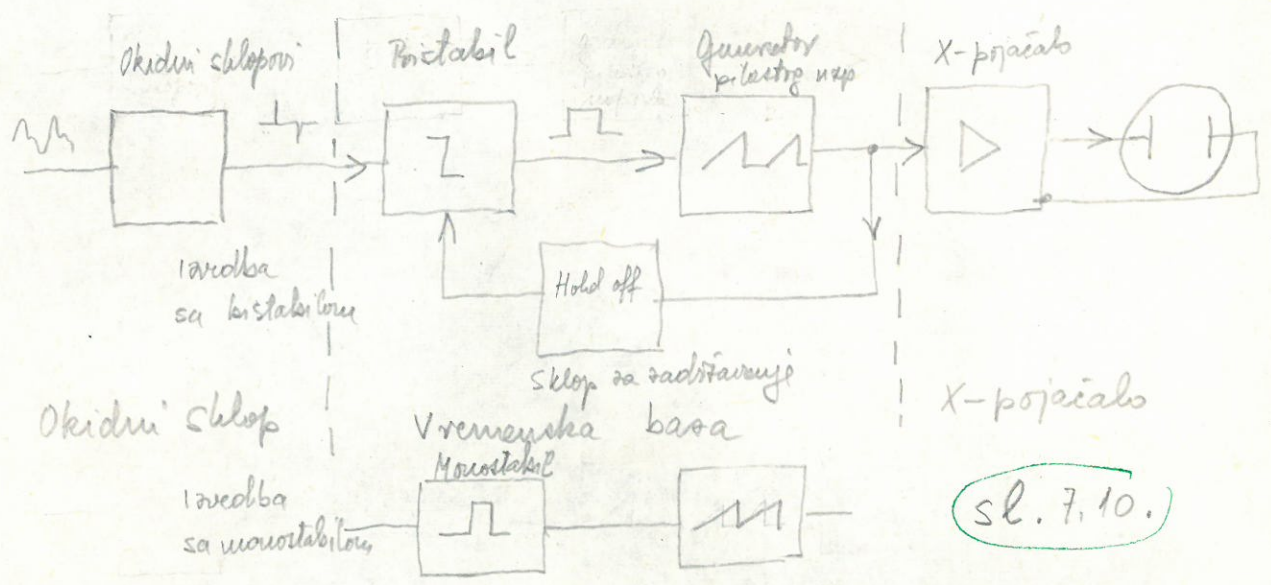 Okidni sklopovi
Bistabil
Generator
pilastog nap
X-pojačalo
Hold off
Izvedba
sa bistabilom
Sklop za zadržavanje
Okidni sklop
Vremenska baza
X-pojačalo
Monostabil
Izvedba
sa monostabilom
sl. 7.10.